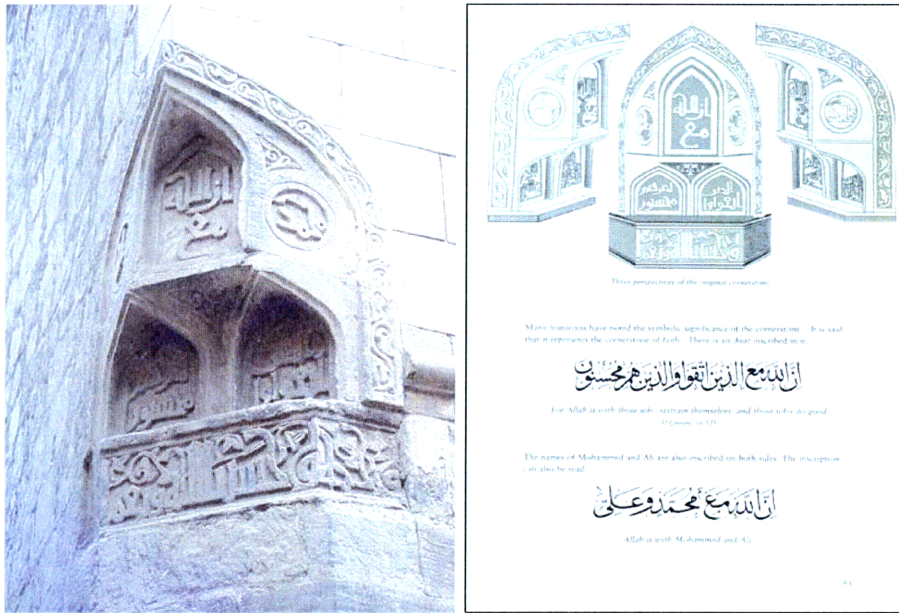 ان الله
مع
محمد
ان الله
مع
Three perspectives of the original cornerstone
Many historians have noted the symbolic significance of the cornerstone. It is said
that it represents the cornerstone of faith. There is an Ayat inscribed in it
ان الله مع الذين اتقوا والذين هم محسنون
For Allah is with those who restrain themselves, and those who do good
The names of Mohammed and Ali are also inscribed on both sides. The inscription
can also be read
ان الله مع محمد وعلي
Allah is with Mohammed and Ali